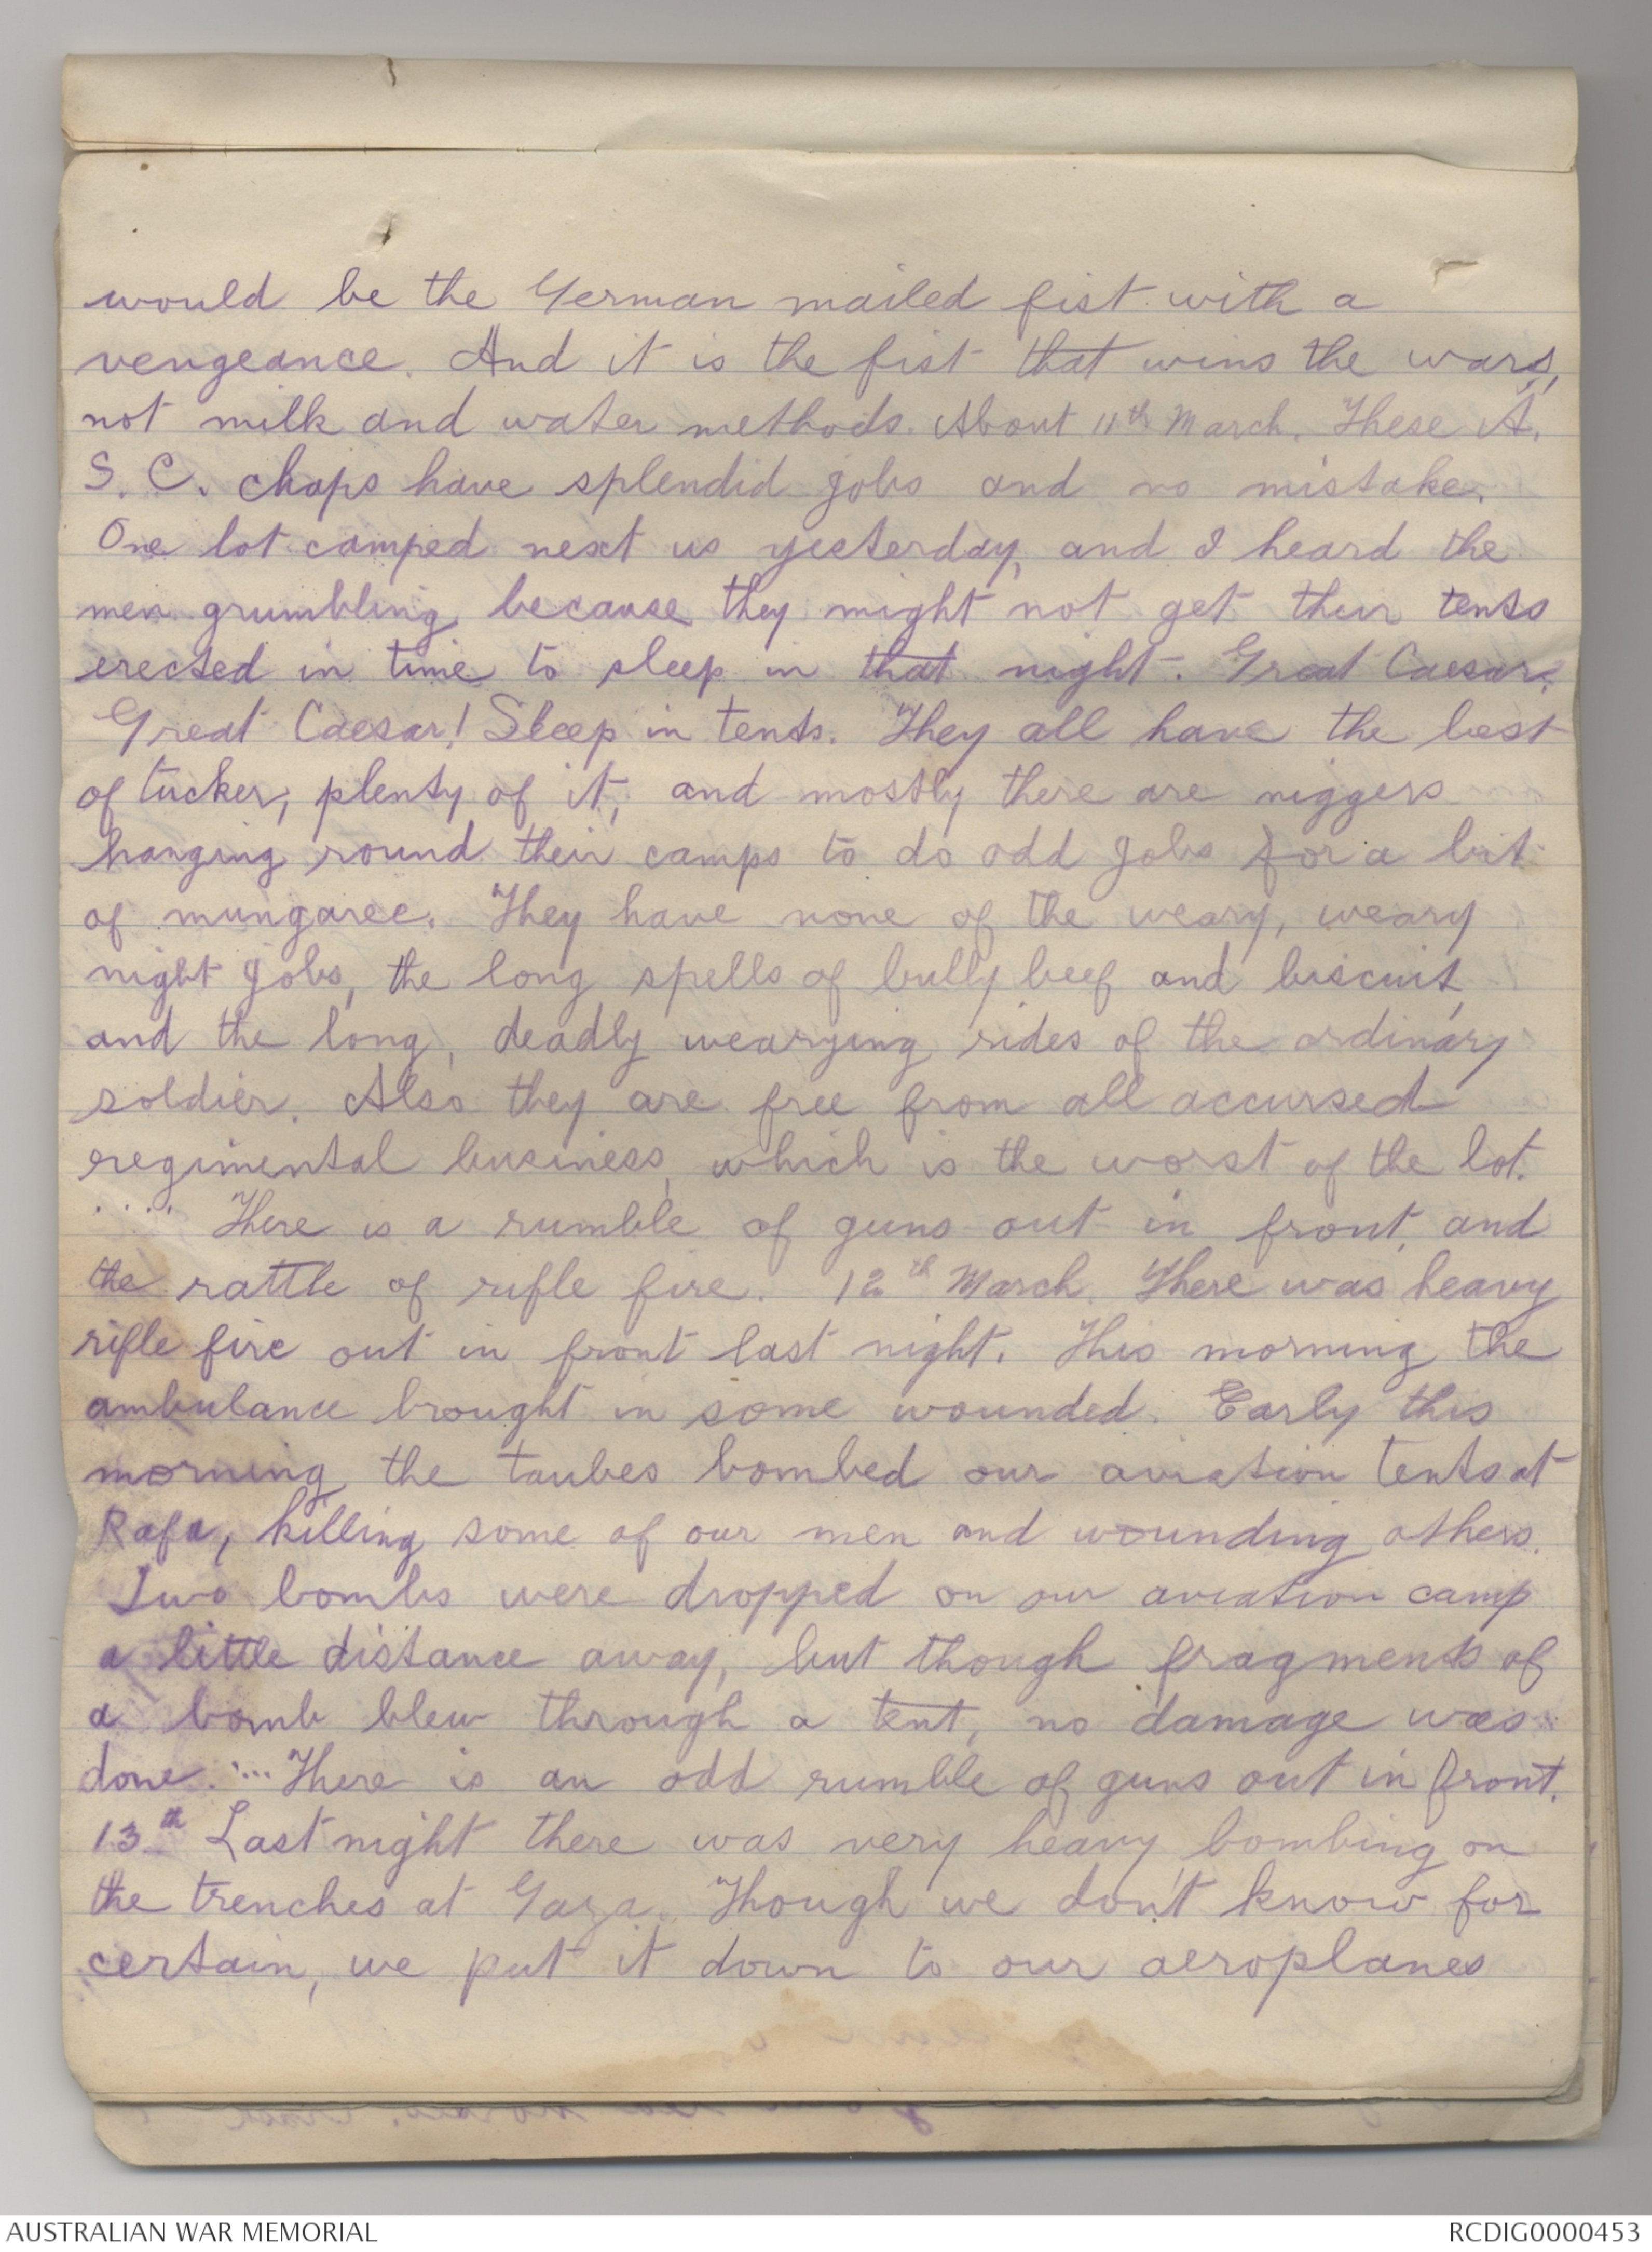 would be the German mailed fist with a
vengeance. And it is the fist that wins the wars,
not milk and water methods. About 11th March. These A.
S. C. chaps have splendid jobs and no mistake.
One lot camped next us yesterday, and I heard the
men grumbling because they might not get their tents
erected in time to sleep in that night. Great Caesar.
Great Caesar! Sleep in tents. They all have the best
of tucker, plenty of it, and mostly there are niggers
hanging round their camps to do odd jobs for a bit
of mungaree. They have none of the weary, weary
night jobs, the long spells of bully beef and biscuit,
and the long, deadly wearying rides of the ordinary
soldier. Also they are free from all accursed
regimental business, which is the worst of the lot.
..... There is a rumble of guns out in front, and
the rattle of rifle fire. 12th March. There was heavy
rifle fire out in front last night. This morning the
ambulance brought in some wounded. Early this
morning the taubes bombed our aviation tents at
Rafa, killing some of our men and wounding others.
Two bombs were dropped on our aviation camp
a little distance away, but though fragments of
a bomb blew through a tent, no damage was
done. .... There is an odd rumble of guns out in front.
13th Last night there was very heavy bombing on
the trenches at Gaza. Though we don't know for
certain, we put it down to our aeroplanes
AUSTRALIAN WAR MEMORIAL
RCDIG0000453